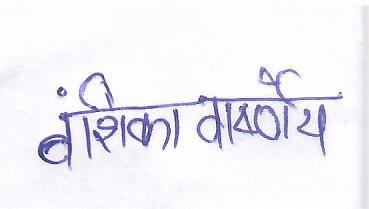 वंशिका वार्ष्णेय